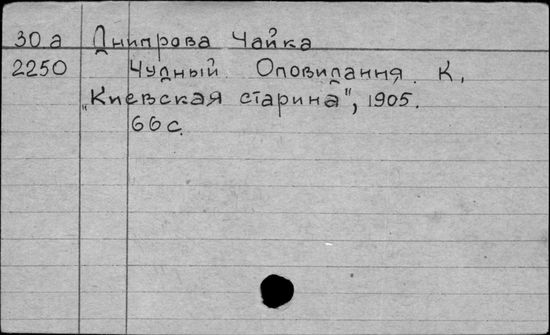 30 а Днипрова Чайка
2250 Чудный. Оповидання. К.
„Киевская старина", 1905.
66 с.